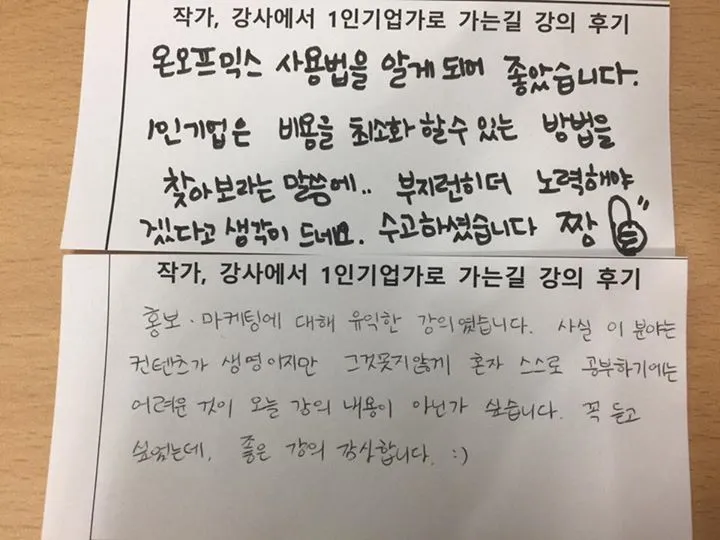 작가, 강사에서 1인기업가로 가는길 강의 후기
온오프믹스 사용법을 알게 되어 좋았습니다.
1인기업은 비용을 최소화 할수 있는 방법을
찾아보라는 말씀에.. 부지런히더 노력해야
겠다고 생각이 드네요. 수고하셨습니다 짱
작가, 강사에서 1인기업가로 가는길 강의 후기
홍보·마케팅에 대해 유익한 강의였습니다. 사실 이 분야는
컨텐츠가 생명이지만 그것못지않게 혼자 스스로 공부하기에는
어려운 것이 오늘 강의 내용이 아닌가 싶습니다. 꼭 듣고
싶었는데, 좋은 강의 감사합니다. :)